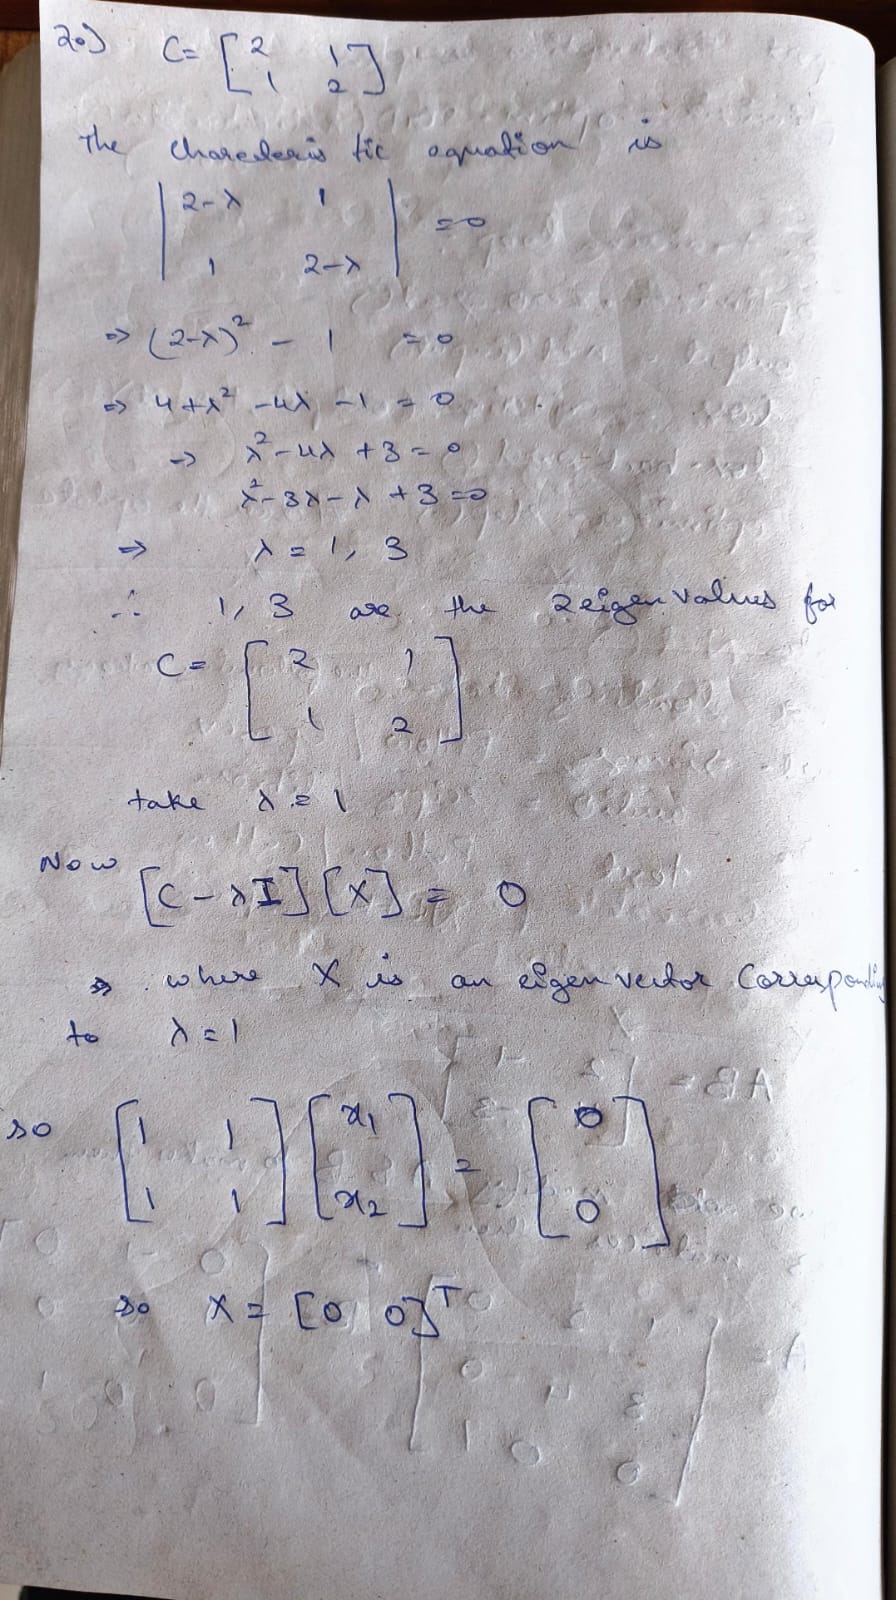 20)
C= [2 1
1 2]
The charecteris tic equation is
|2-λ 1
1 2-λ| =0
⇒ (2-λ)² - 1 = 0
⇒ 4+λ² -4λ -1 = 0
⇒ λ²-4λ +3 = 0
λ²-3λ-λ +3 =0
⇒ λ = 1, 3
∴ 1, 3 are the 2eigen values for
C= [2 1
1 2]
take λ = 1
Now
[C-λI][X] = 0
⇒ where X is an eigen vector Corresponding
to λ=1
so [1 1
1 1] [x₁
x₂] = [0
0]
so X = [0 0]ᵀ